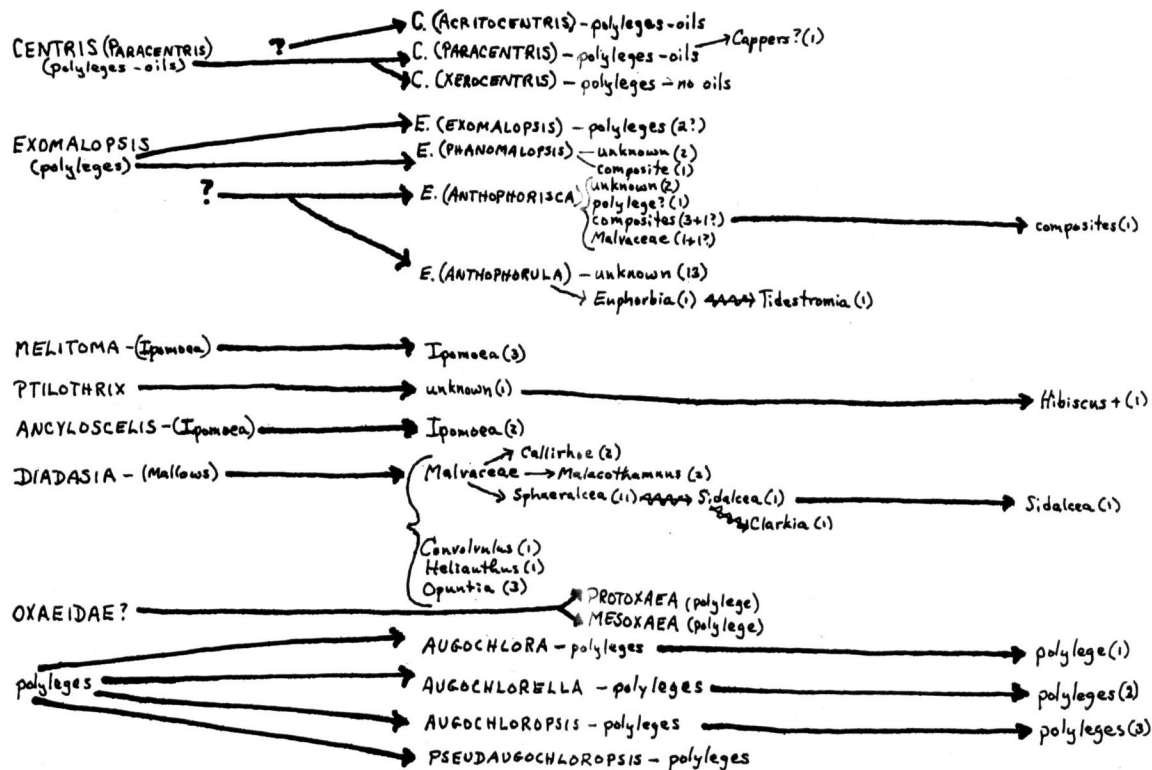 C. (ACRITOCENTRIS) - polyleges-oils
?
CENTRIS (PARACENTRIS)
(polyleges-oils)
C. (PARACENTRIS) - polyleges-oils
Cappers?(1)
C. (XEROCENTRIS) - polyleges - no oils
E. (EXOMALOPSIS) - polyleges (2?)
EXOMALOPSIS
(polyleges)
E. (PHANOMALOPSIS) - unknown (2)
composite (1)
?
E. (ANTHOPHORISCA)
unknown (2)
polylege? (1)
composites (3+1?)
Malvaceae (1+1?)
composites (1)
E. (ANTHOPHORULA) - unknown (13)
Euphorbia (1)
Tidestromia (1)
MELITOMA - (Ipomoea)
Ipomoea (3)
PTILOTHRIX
unknown (1)
Hibiscus + (1)
ANCYLOSCELIS - (Ipomoea)
Ipomoea (2)
Callirhoe (2)
DIADASIA - (Mallows)
Malvaceae
Malacothamnus (2)
Sphaeralcea (11)
Sidalcea (1)
Sidalcea (1)
Clarkia (1)
Convolvulus (1)
Helianthus (1)
Opuntia (3)
OXAEIDAE?
PROTOXAEA (polylege)
MESOXAEA (polylege)
AUGOCHLORA - polyleges
polylege (1)
polyleges
AUGOCHLORELLA - polyleges
polyleges (2)
AUGOCHLOROPSIS - polyleges
polyleges (3)
PSEUDAUGOCHLOROPSIS - polyleges